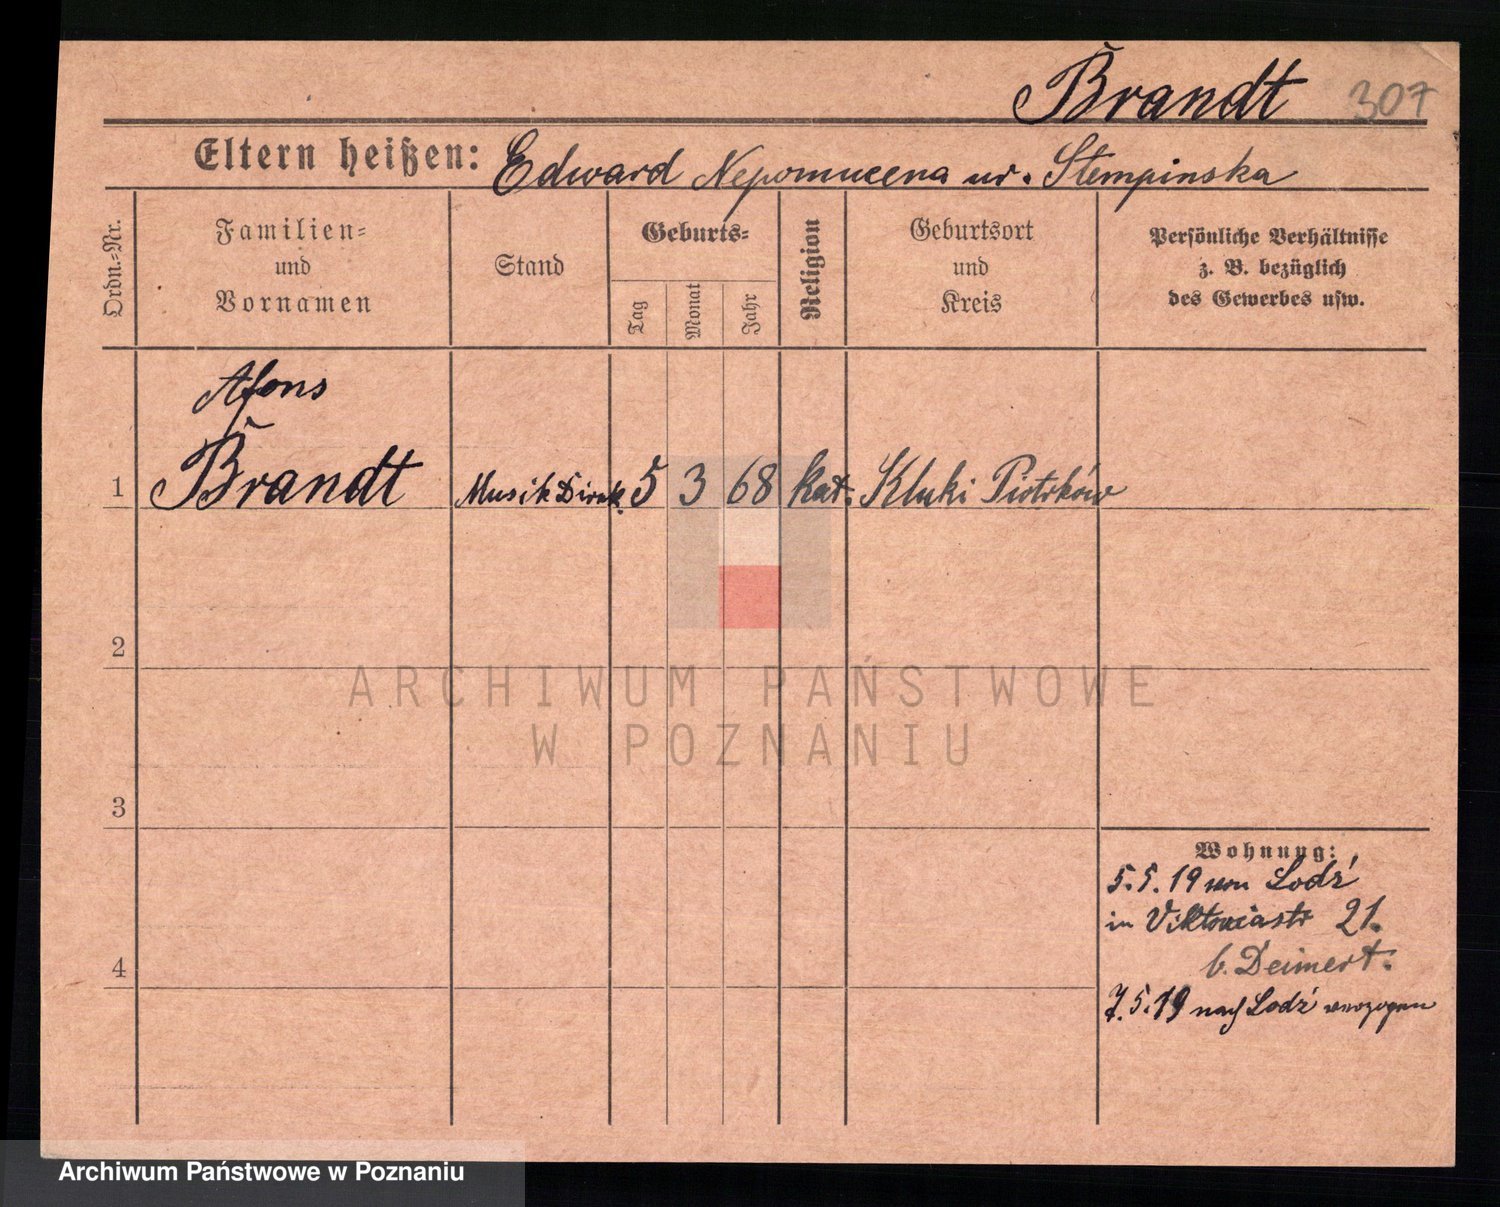 Brandt 307
Eltern heißen: Edward Nepomucena ur. Stempinska
Ordn.-Nr.
Familien-
und
Vornamen
Stand
Geburts-
Tag
Monat
Jahr
Religion
Geburtsort
und
Kreis
Persönliche Verhältnisse
z. B. bezüglich
des Gewerbes usw.
Afons
1 Brandt Musik Direk. 5 3 68 kat. Kluki Piotrków
2
ARCHIWUM PAŃSTWOWE
W POZNANIU
3
Wohnung:
5.5.19 von Lodź
in Viktoriastr 21.
b. Deimert.
4
7.5.19 nach Lodź verzogen
Archiwum Państwowe w Poznaniu